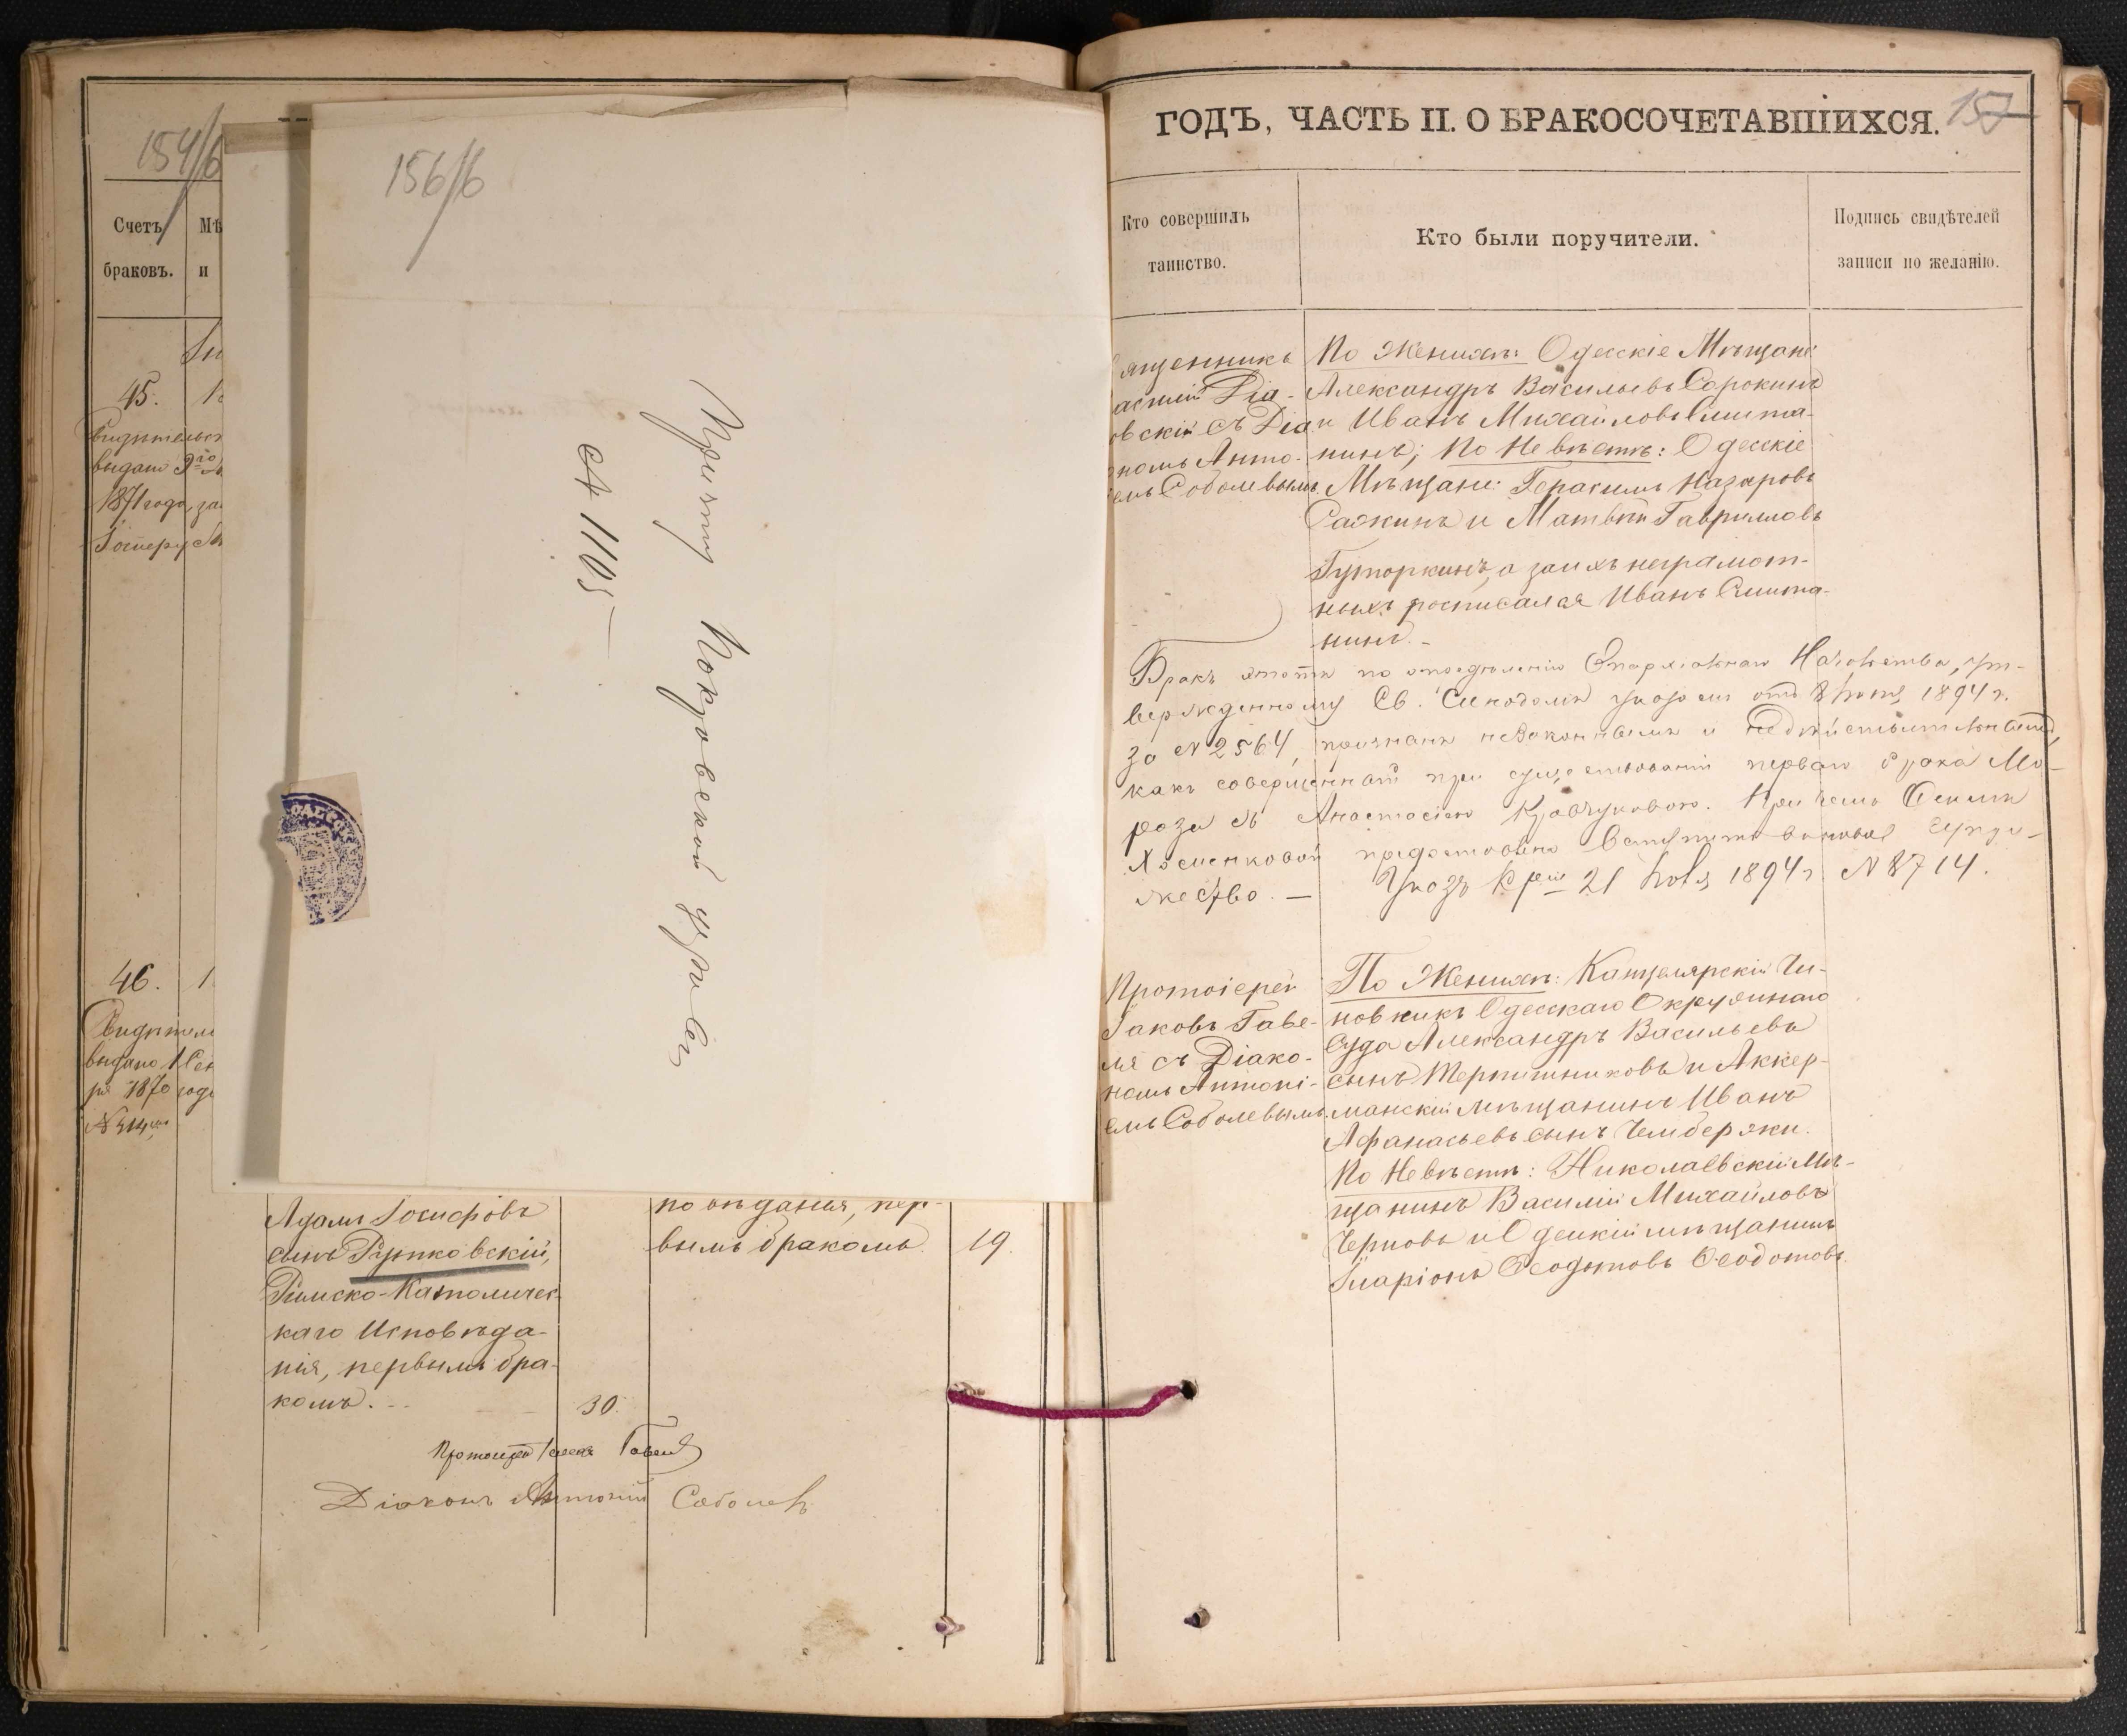 154/б
Счетъ
браковъ.
Мѣ
и
45.
выдано 9го
1871 года, за
46.
выдано 1 Сен
ря 1870 года
156/б
Причту Покровской церкви
№ 1105 —
Адамъ Іосифовъ
сынъ Рутковскій,
Римско-Католичес-
каго Исповѣда-
нія, первымъ бра-
комъ.
30.
повѣданія, пер-
вымъ бракомъ.
19.
Протоіерей Іаковъ Гавеля
Діаконъ Антоній Соболевъ
ГОДЪ, ЧАСТЬ II. О БРАКОСОЧЕТАВШИХСЯ.
157
Кто совершилъ
таинство.
Кто были поручители.
Подпись свидѣтелей
записи по желанію.
ященникъ
овскій съ Діа
номъ Анто-
емъ Соболевымъ
По Женихѣ: Одесскіе Мѣщане:
Александръ Васильевъ Сорокинъ
и Иванъ Михайловъ Смита-
нинъ; По Невѣстѣ: Одесскіе
Мѣщане: Герасимъ Назаровъ
Сажинъ и Матвѣй Гавриловъ
Гуторкинъ, а за ихъ неграмот-
ныхъ росписался Иванъ Смита-
нинъ.-
Бракъ этотъ по опредѣленію Епархіальнаго Начальства, ут-
вержденному Св. Синодомъ указомъ отъ 8 Іюня 1894 г.
за № 2564, признанъ незаконнымъ и недѣйствительнымъ,
какъ совершенный при существованіи перваго брака Мо-
роза съ Анастасіею Кравчуковою. Причемъ
Хоменковой предоставлено вступить въ новое супру-
жество. — Указъ 21 1894 г № 8714.
Протоіерей
Іаковъ Гаве-
ля съ Діако-
номъ Антоні-
емъ Соболевымъ.
По Женихѣ: Канцелярскій Чи-
новникъ Одесскаго Окружнаго
Суда Александръ Васильевъ
сынъ Терпишниковъ и Аккер-
манскій мѣщанинъ Иванъ
Афанасьевъ сынъ Чембержи.
По Невѣстѣ: Николаевскій Мѣ-
щанинъ Василій Михайловъ
Черновъ и Одесскій мѣщанинъ
Иларіонъ Ѳеодотовъ Ѳеодотовъ.